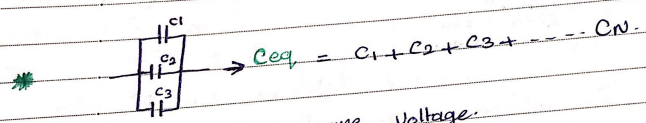 C1
C2
C3
→ Ceq = C1 + C2 + C3 + ---- CN.
Voltage.